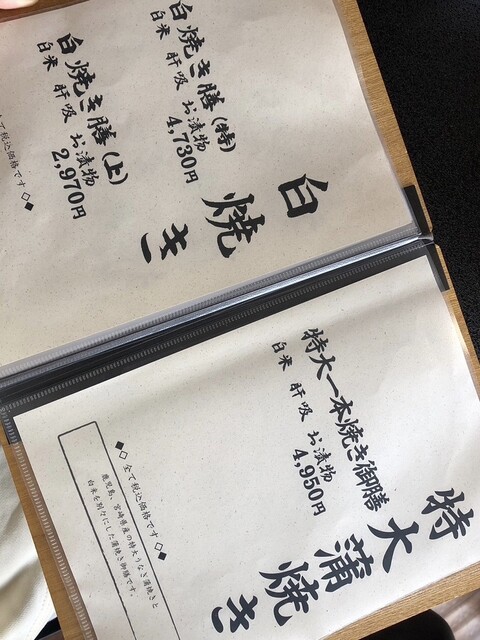 白焼き
白焼き膳(特)
白米 肝吸 お漬物
4,730円
白焼き膳(上)
白米 肝吸 お漬物
2,970円
全て税込価格です◆◇
特大蒲焼き
特大一本焼き御膳
白米 肝吸 お漬物
4,950円
◆◇全て税込価格です◇◆
鹿児島、宮崎県産の特大うなぎ蒲焼きと
白米を別々にした蒲焼き御膳です。